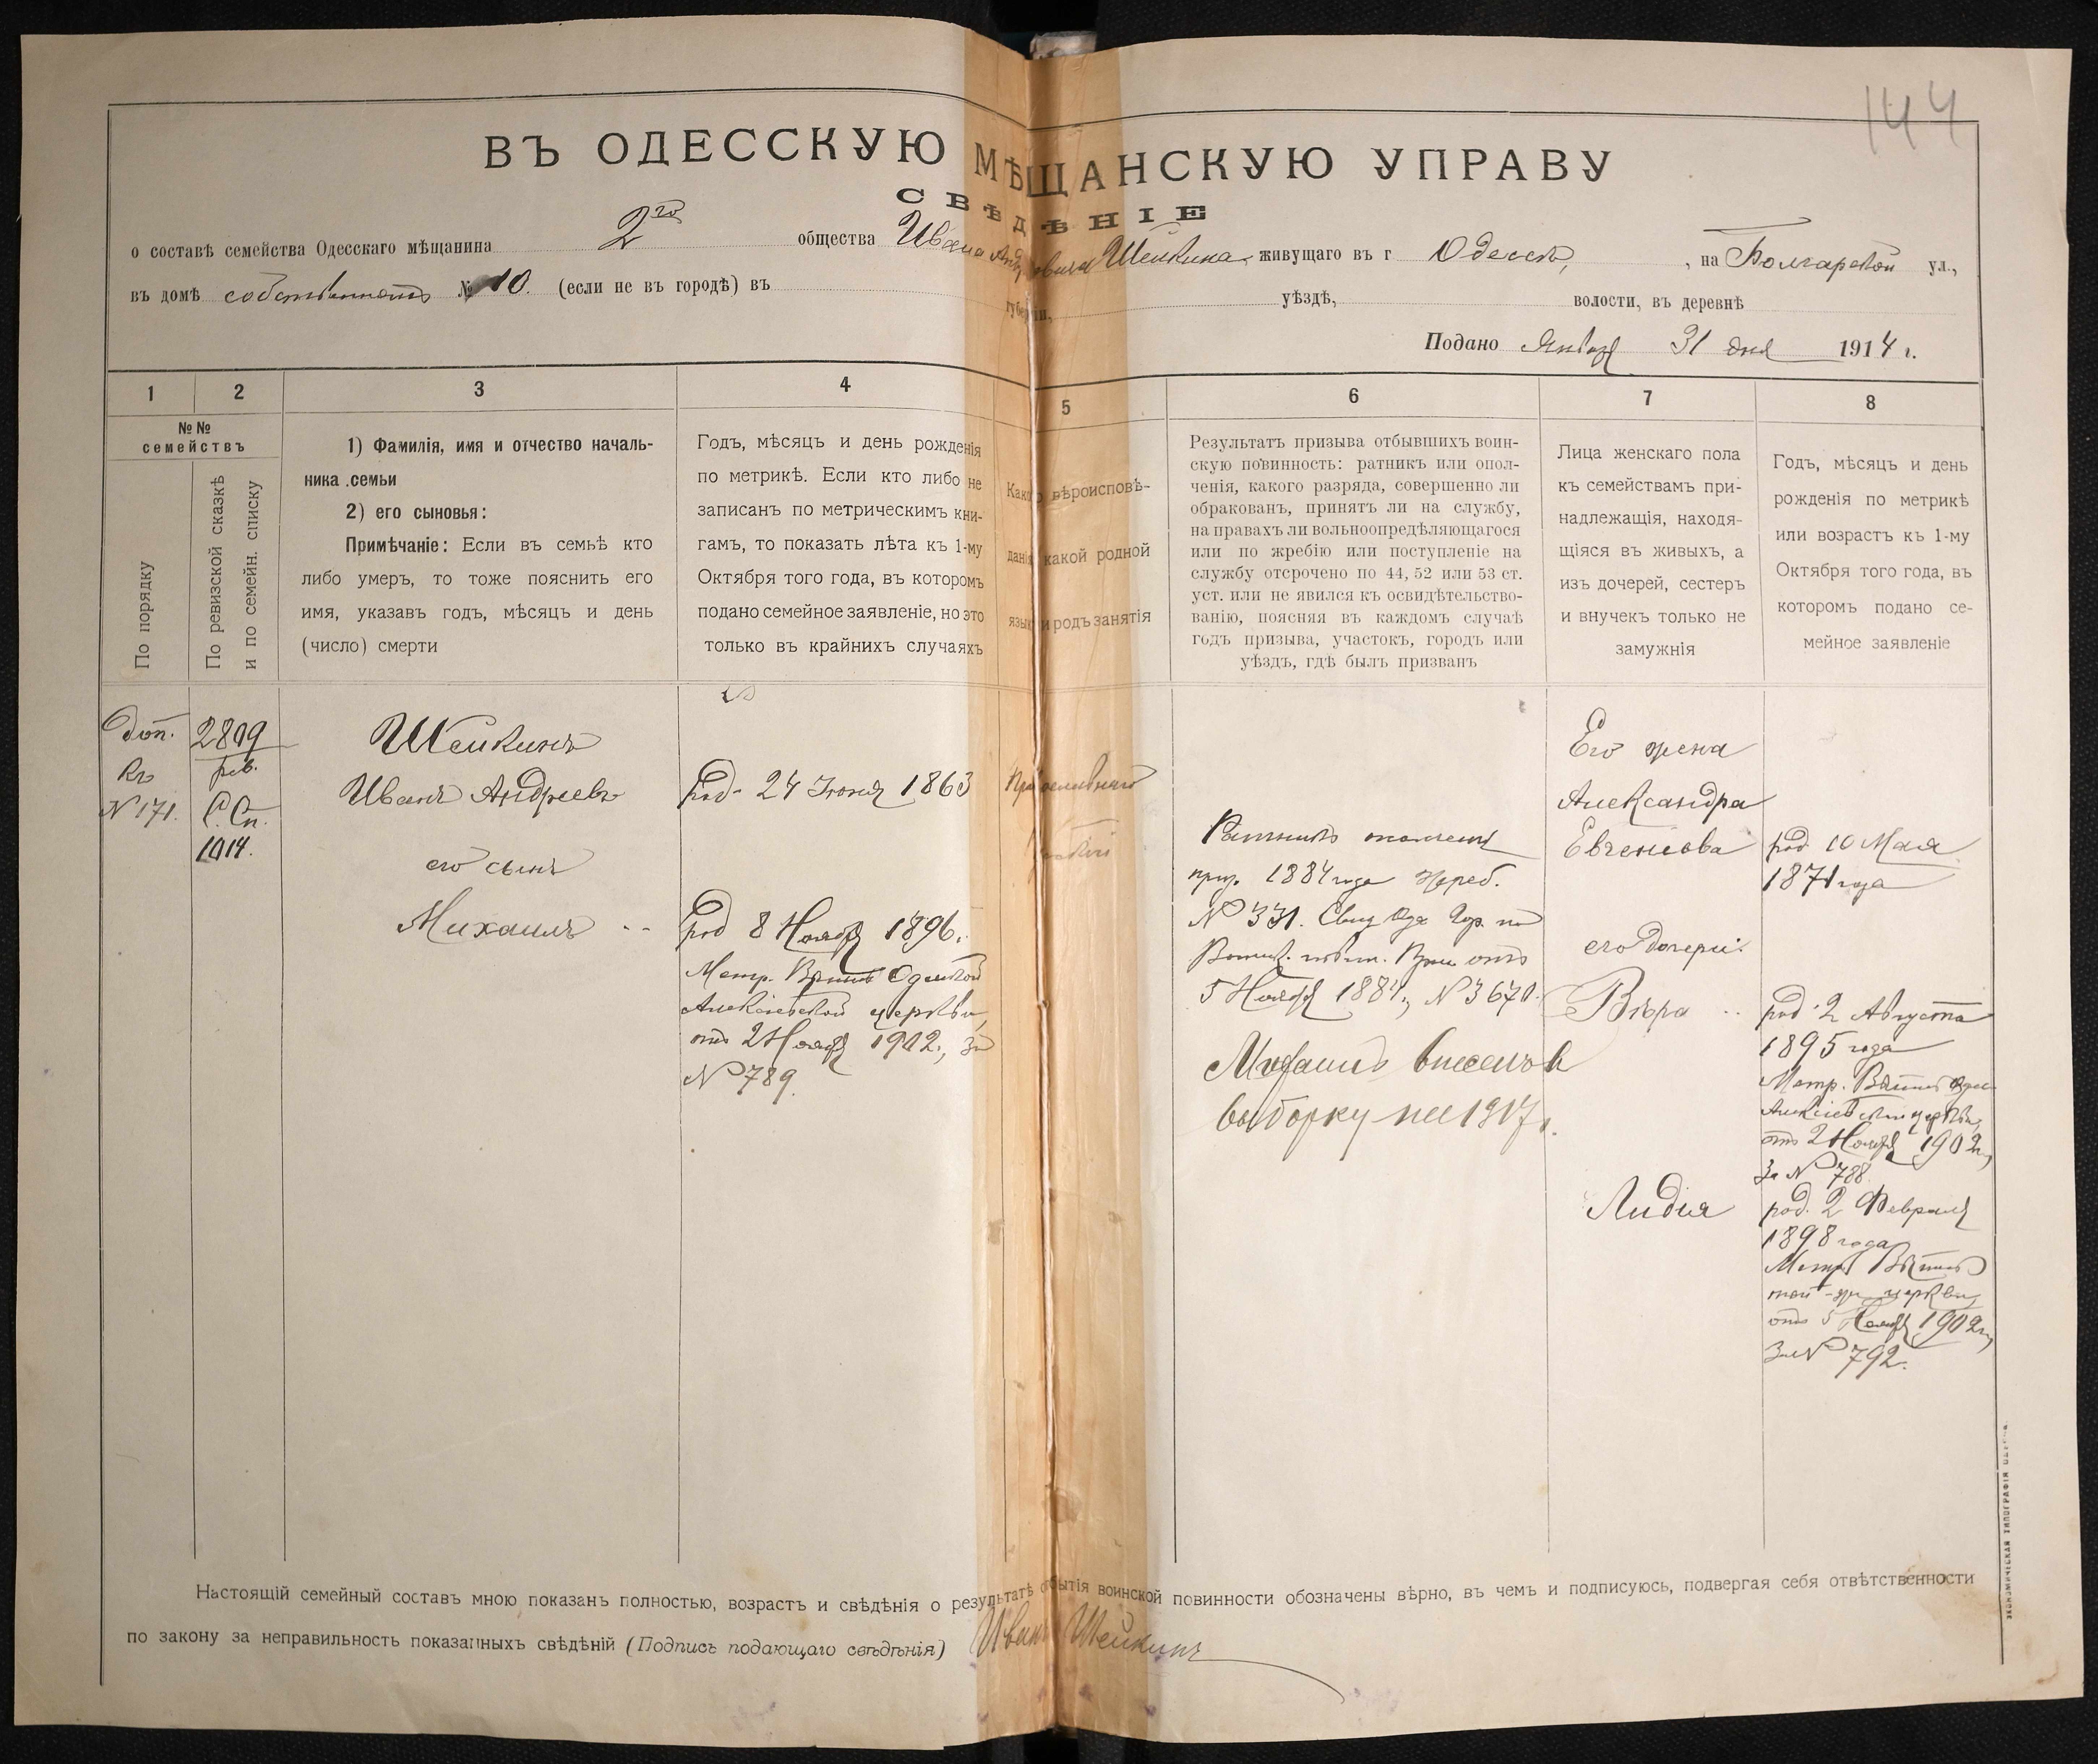 144
ВЪ ОДЕССКУЮ МѢЩАНСКУЮ УПРАВУ
СВѢДѢНІЕ
о составѣ семейства Одесскаго мѣщанина 2го общества Ивана Андреевича Шейкина живущаго въ г Одессѣ, , на Болгарской ул.,
въ домѣ собственномъ № 10. (если не въ городѣ) въ губерніи, уѣздѣ, волости, въ деревнѣ
Подано Января 31 дня 1914 г.
1 2 3 4 5 6 7 8
№№
семействъ
По порядку
По ревизской сказкѣ
и по семейн. списку
1) Фамилія, имя и отчество началь-
ника семьи
2) его сыновья:
Примѣчаніе: Если въ семьѣ кто
либо умеръ, то тоже пояснить его
имя, указавъ годъ, мѣсяцъ и день
(число) смерти
Годъ, мѣсяцъ и день рожденія
по метрикѣ. Если кто либо не
записанъ по метрическимъ кни-
гамъ, то показать лѣта къ 1-му
Октября того года, въ которомъ
подано семейное заявленіе, но это
только въ крайнихъ случаяхъ
Какого вѣроисповѣ-
данія какой родной
языкъ и родъ занятія
Результатъ призыва отбывшихъ воин-
скую повинность: ратникъ или опол-
ченія, какого разряда, совершенно ли
обракованъ, принятъ ли на службу,
на правахъ ли вольноопредѣляющагося
или по жребію или поступленіе на
службу отсрочено по 44, 52 или 53 ст.
уст. или не явился къ освидѣтельство-
ванію, поясняя въ каждомъ случаѣ
годъ призыва, участокъ, городъ или
уѣздъ, гдѣ былъ призванъ
Лица женскаго пола
къ семействамъ при-
надлежащія, находя-
щіяся въ живыхъ, а
изъ дочерей, сестеръ
и внучекъ только не
замужнія
Годъ, мѣсяцъ и день
рожденія по метрикѣ
или возрастъ къ 1-му
Октября того года, въ
которомъ подано се-
мейное заявленіе
Доп.
къ
N 171.
2809
рев.
С. Сп.
1914.
Шейкинъ
Иванъ Андреевъ
его сынъ
Михаилъ
род. 24 Іюня 1863
род 8 Ноября 1896.
Метр. Выпись Одесской
Алексіевской церкви,
отъ 2 Ноября 1902, за
N 789.
Православнаго
Ратникъ ополченія
приз. 1884 года жереб.
N 331. Свид Оде Гор. по
Воинск. повин. Прис отъ
5 Ноября 1884, N 3670.
Михаилъ внесенъ в
выборку на 1917 г.
Его жена
Александра
Евгеніева
его дочери:
Вѣра
Лидія
род. 10 Мая
1871 года
род. 2 Августа
1895 года
Метр. Выпись Одес
Алексіевской церкви,
отъ 2 Ноября 1902 г,
за N 788
род. 2 Февраля
1898 года
Метр Выпись
той-же церкви,
отъ 5 Ноября 1902 г,
за N 792.
Настоящій семейный составъ мною показанъ полностью, возрастъ и свѣдѣнія о результатѣ отбытія воинской повинности обозначены вѣрно, въ чемъ и подписуюсь, подвергая себя отвѣтственности
по закону за неправильность показанныхъ свѣдѣній (Подпись подающаго свѣдѣнія) Иванъ Шейкинъ
ЭКОНОМИЧЕСКАЯ ТИПОГРАФІЯ